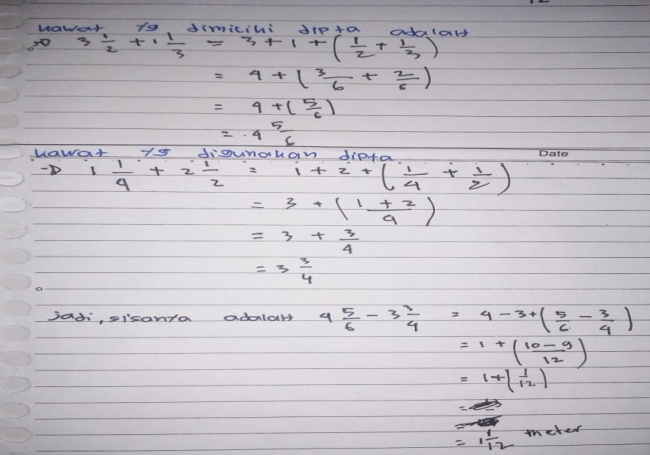 kawat yg dimiliki dipta adalah
→ 3 1/2 + 1 1/3 = 3 + 1 + (1/2 + 1/3)
= 4 + (3/6 + 2/6)
= 4 + (5/6)
= 4 5/6
kawat yg digunakan dipta Date
→ 1 1/4 + 2 1/2 = 1 + 2 + (1/4 + 1/2)
= 3 + (1 + 2/4)
= 3 + 3/4
= 3 3/4
jadi, sisanya adalah 4 5/6 - 3 3/4 = 4 - 3 + (5/6 - 3/4)
= 1 + (10 - 9/12)
= 1 + (1/12)
=
=
= 1 1/12 meter